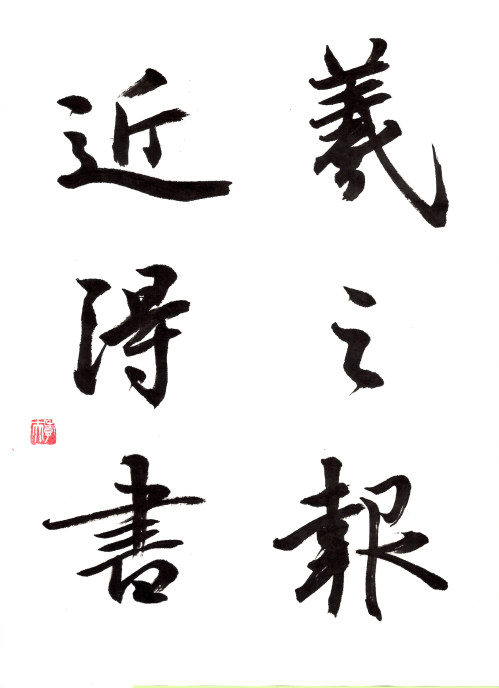 羲之報
近得書